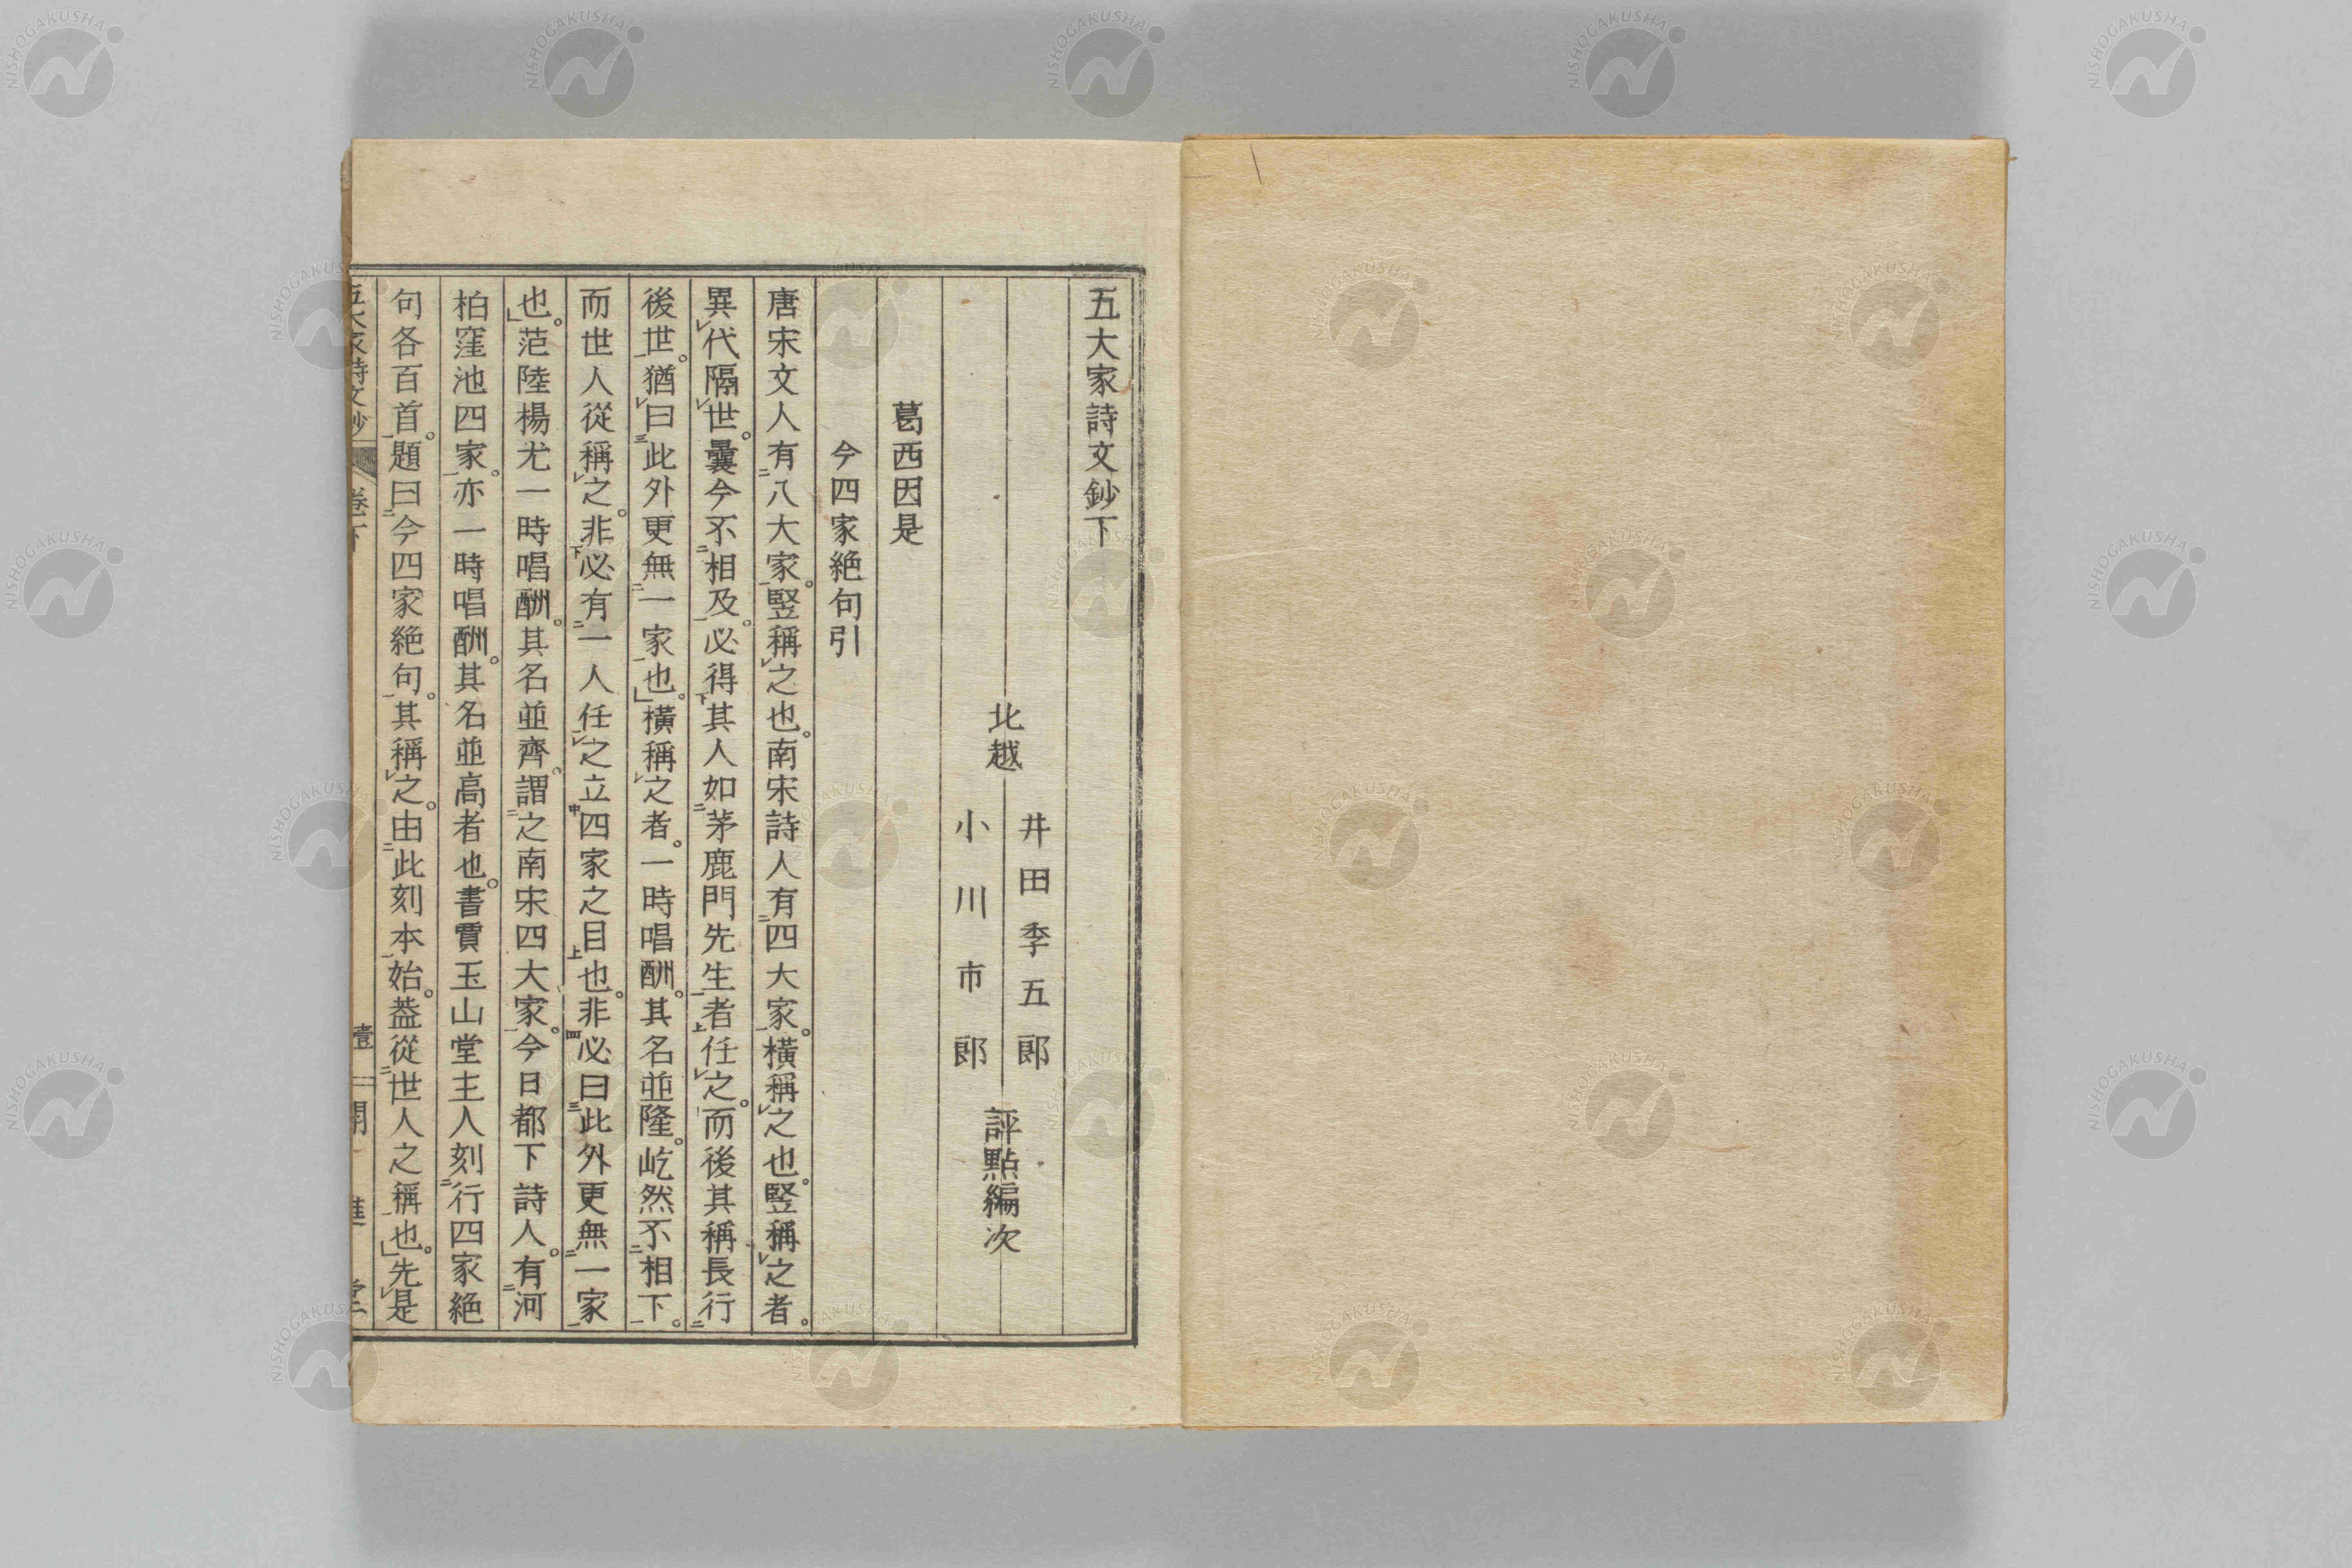 五大家詩文鈔下
北越
井田季五郞
小川市郞
評點編次
葛西因是
今四家絶句引
唐宋文人有八大家。竪稱之也。南宋詩人有四大家。橫稱之也。竪稱之者。
異代隔世。曩今不相及。必得其人如茅鹿門先生者任之。而後其稱長行
後世。猶曰此外更無一家也。橫稱之者。一時唱酬。其名並隆。屹然不相下。
而世人從稱之。非必有一人任之立四家之目也。非必曰此外更無一家
也。范陸楊尤一時唱酬。其名並齊。謂之南宋四大家。今日都下詩人。有河
柏窪池四家。亦一時唱酬。其名並高者也。書賈玉山堂主人刻行四家絶
句各百首。題曰今四家絶句。其稱之。由此刻本始。葢從世人之稱也。先是
五大家詩文鈔 卷下 壹 開進堂
NISHOGAKUSHA